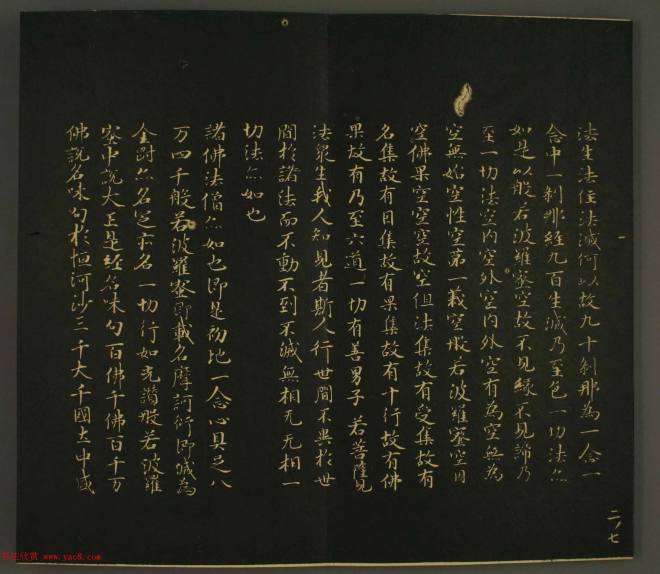 法生法住法滅何以故九十剎那為一念一
念中一剎那經九百生滅乃至色一切法亦
如是以般若波羅蜜空故不見緣不見諦乃
至一切法空內空外空內外空有為空無為
空無始空性空第一義空般若波羅蜜空因
空佛果空空空故空但法集故有受集故有
名集故有因集故有果集故有十行故有佛
果故有乃至六道一切有善男子若菩薩見
法眾生我人知見者斯人行世間不異於世
間於諸法而不動不到不滅無相无无相一
切法亦如也
諸佛法僧亦如也即是初地一念心具足八
万四千般若波羅蜜即載名摩訶衍即滅為
金剛亦名定亦名一切行如光讚般若波羅
蜜中說大王是經名味句百佛千佛百千万
佛說名味句於恒河沙三千大千國土中盛
二ノ七
書法欣賞 www.yac8.com